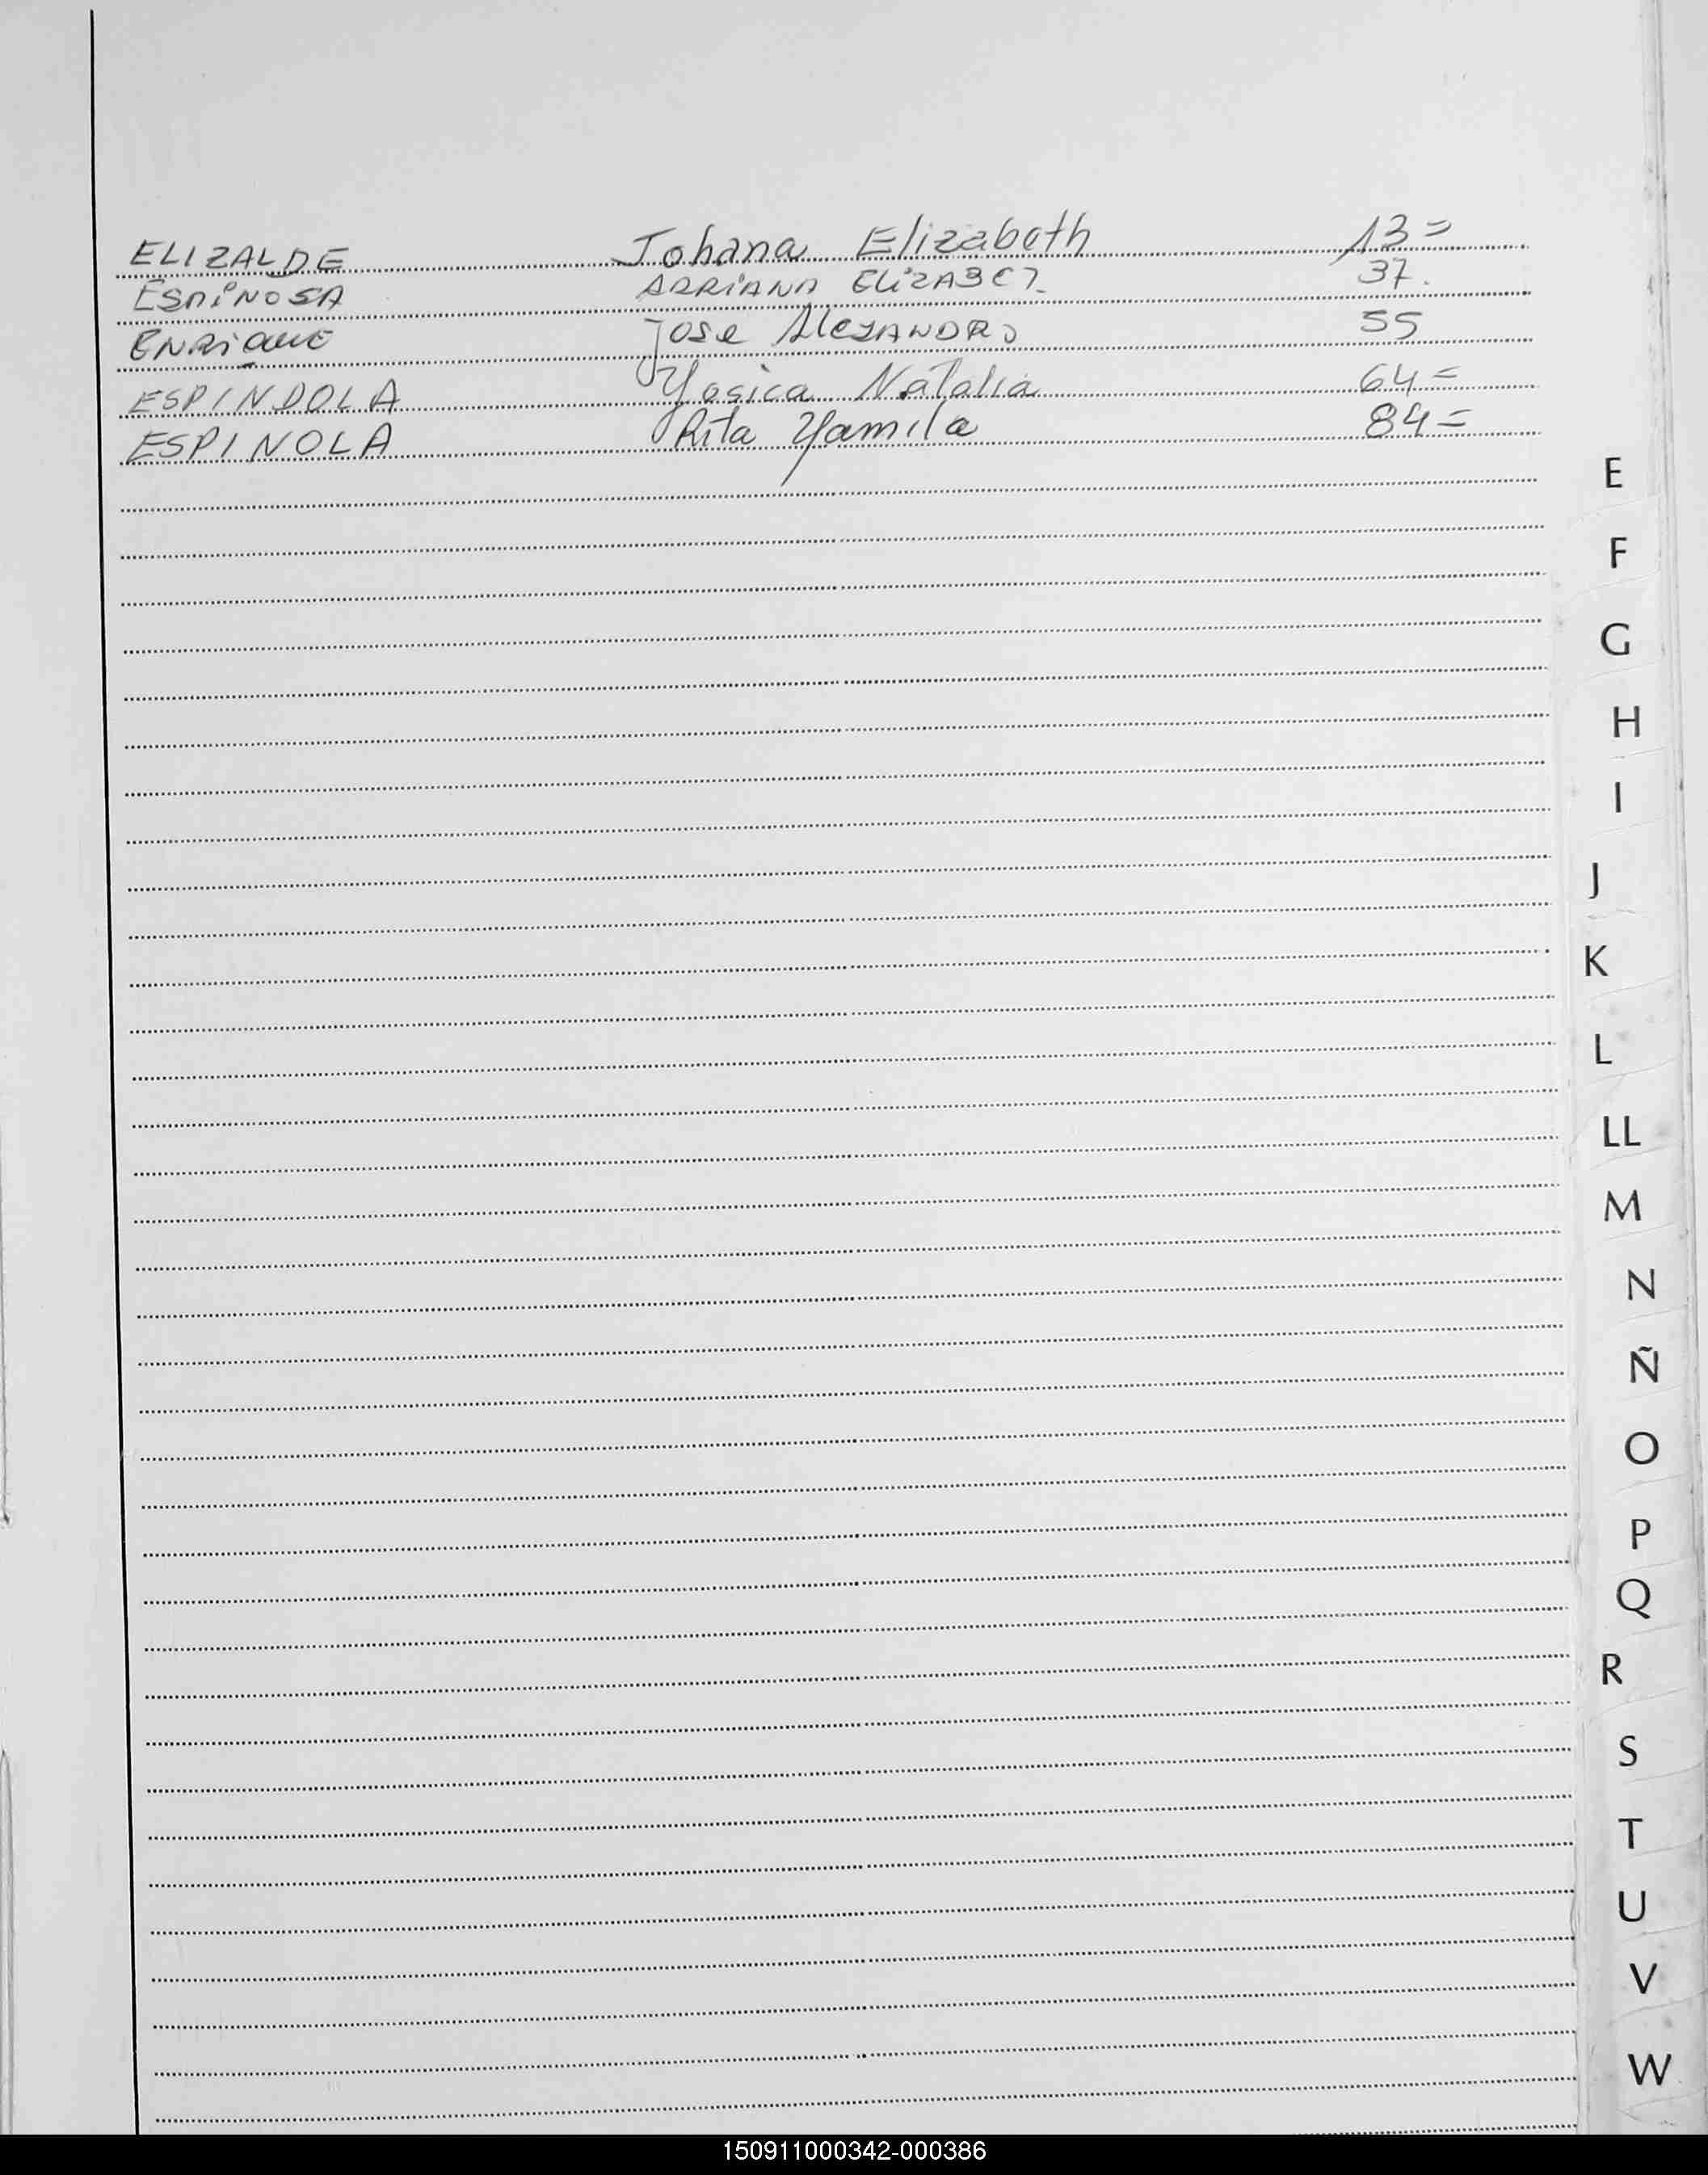 ELIZALDE Johana Elizabeth 13=
ESPINOSA ADRIANA ELIZABET 37.
ENRIQUE Jose AleJANDRO 55
ESPINDOLA Yesica Natalia 64=
ESPINOLA Rita Yamila 84=
E
F
G
H
I
J
K
L
LL
M
N
Ñ
O
P
Q
R
S
T
U
V
W
150911000342-000386